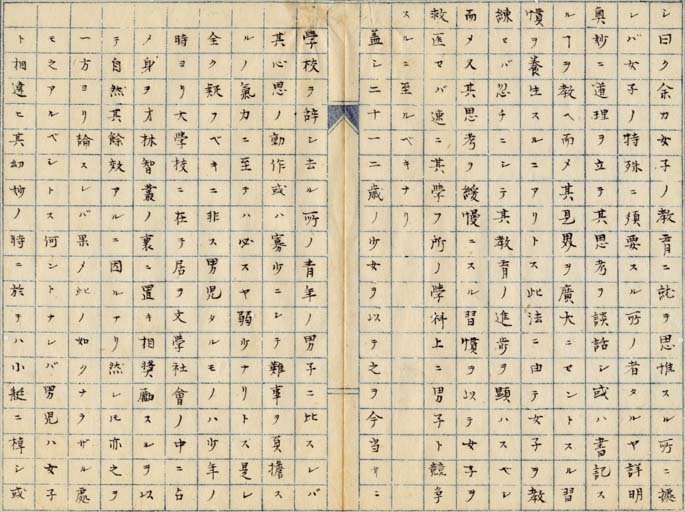 シ曰ク余カ女子ノ教育ニ就ヲ思惟スル所ニ據
レバ女子ノ特殊ニ須要スル所ノ者タルヤ詳明
奥妙ニ道理ヲ立テ其思考ヲ談話シ或ハ書記ス
ルヿヲ教ヘ而メ其見界ヲ廣大ニセントスル習
慣ヲ養生スルニアリトス此法ニ由テ女子ヲ教
練セバ忍チニシテ其教育ノ進歩ヲ顕ハスベシ
而メス其思考ヲ緩慢ニスル習慣ヲ以テ女子ヲ
教医セバ速ニ其学フ所ノ学科上ニ男子ト競争
スルニ至ルベキナリ
盖シ二十一二歳ノ少女ヲ以テ之ヲ今当サニ
學校ヲ辞シ去ル所ノ青年ノ男子ニ比スレバ
其心思ノ動作或ハ寡少ニシテ難事ヲ負擔ス
ルノ氣力ニ至テハ必スヤ弱少ナリトス是レ
全ク疑フベキニ非ス男児タルモノハ少年ノ
時ヨリ大學校ニ在テ居ヲ文學社會ノ中ニ占
メ身ヲ才林智叢ノ裏ニ置キ相奨励スルヲ以
テ自然其餘效アルニ因ルナリ然レモ亦之ヲ
一方ヨリ論スレバ果メ此ノ如クナラザル處
モ之アルベシトス何ントナレバ男児ハ女子
ト相違ヒ其幼妙ノ時ニ於テハ小艇ニ棹シ或